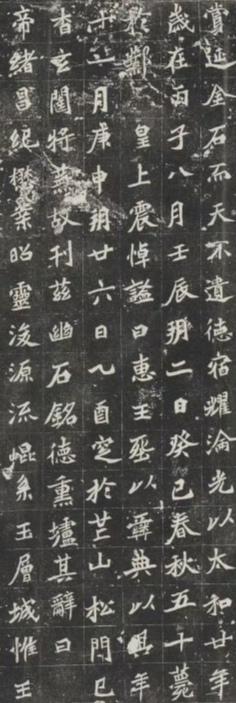 賞延金石而天不遺德宿耀淪光以太和廿年
歲在丙子八月壬辰朔二日癸巳春秋五十薨
於鄴　皇上震悼謚曰惠王葬以彝典以其年
十一月庚申朔廿六日乙酉窆於芒山松門已
杳玄闥將蕪故刊茲幽石銘德熏壚其辭曰
帝緒昌紀懋業昭靈浚源流崐系玉層城惟王